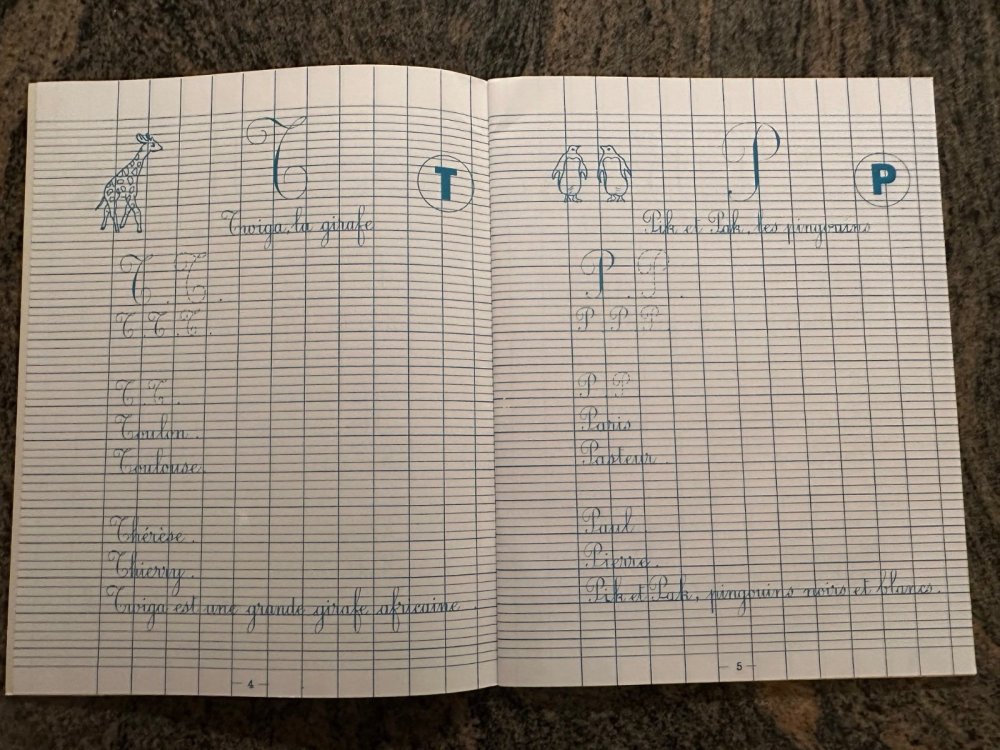 T
T
Twiga, la girafe
T . T .
T . T . T .
T T .
Toulon .
Toulouse
Thérèse .
Thierry .
Twiga est une grande girafe africaine .
4
P
P
Pik et Pak, les pingouins
P . P .
P P P
P P
Paris
Pasteur .
Paul
Pierre .
Pik et Pak, pingouins noirs et blancs .
5